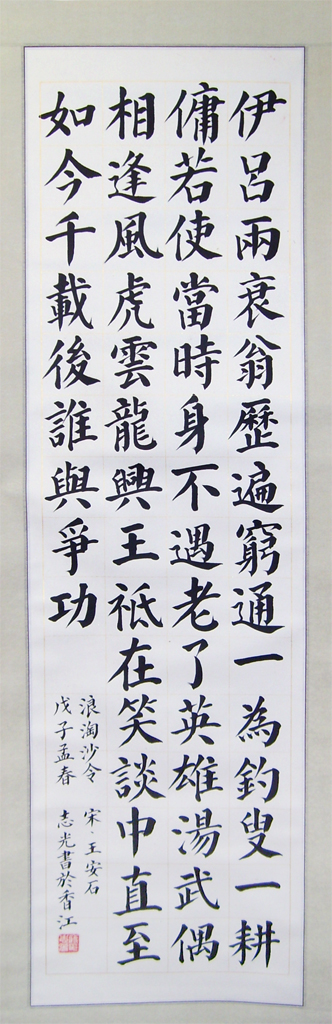 伊呂兩衰翁歷遍窮通一為釣叟一耕
傭若使當時身不遇老了英雄湯武偶
相逢風虎雲龍興王祗在笑談中直至
如今千載後誰與爭功
浪淘沙令 宋·王安石
戊子孟春 志光書於香江